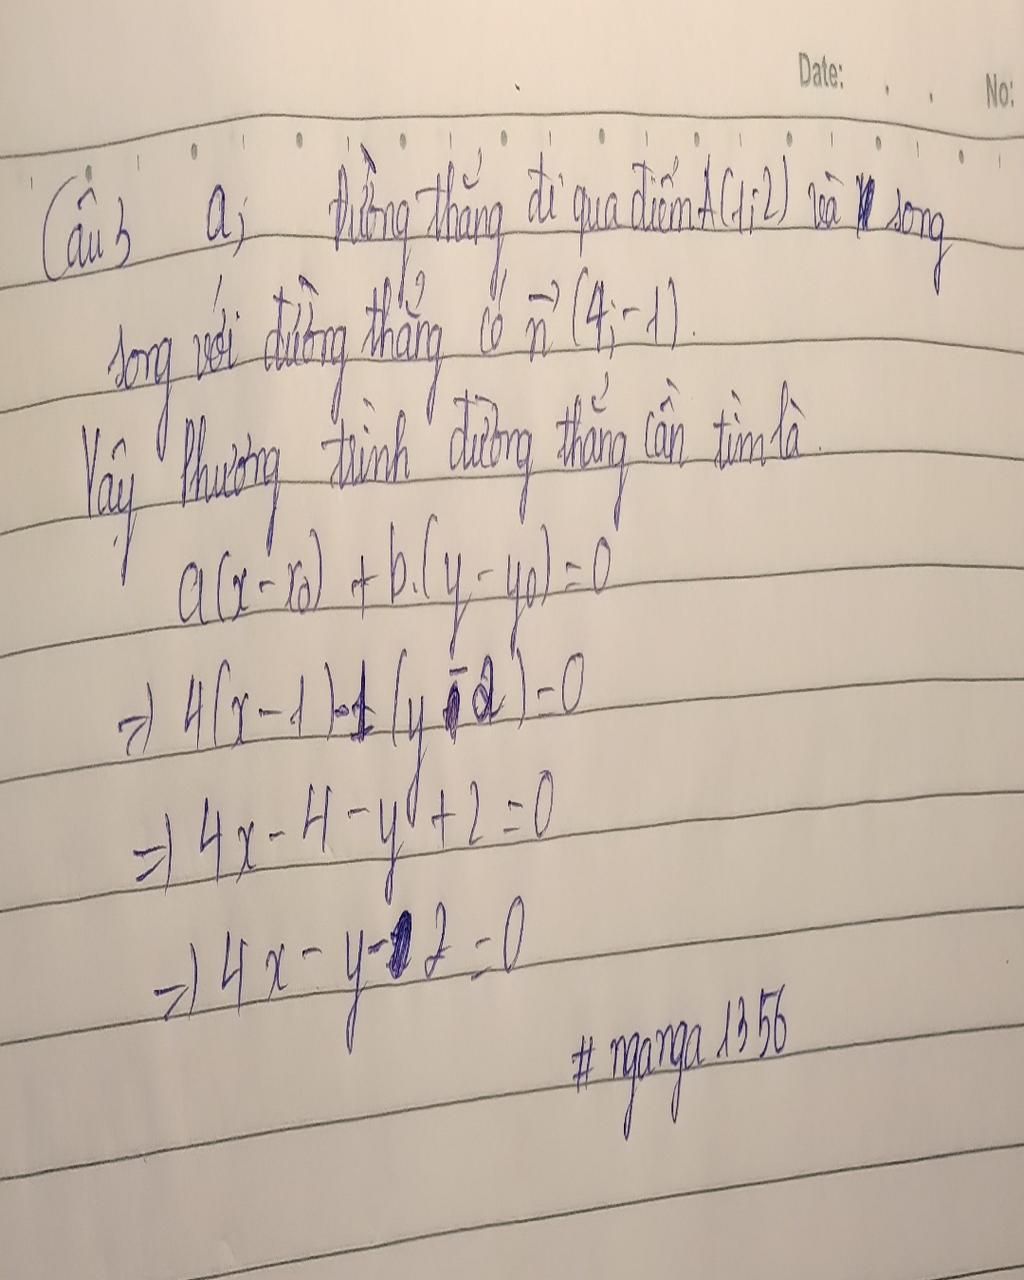 Date: . . No:
Câu 3 a; Đường thẳng đi qua điểm A(1;2) và song
song với đường thẳng có n⃗ (4;-1).
Vậy Phương trình đường thẳng cần tìm là.
a(x-x₀) + b.(y-y₀)=0
=) 4(x-1)-1(y-2)=0
=) 4x-4-y+2=0
=) 4x-y-2=0
# nganga 1356